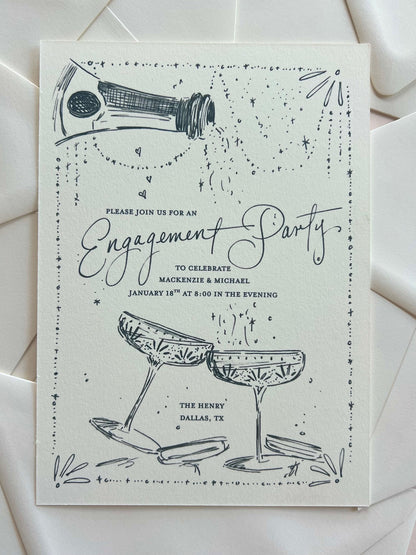 PLEASE JOIN US FOR AN
Engagement Party
TO CELEBRATE
MACKENZIE & MICHAEL
JANUARY 18TH AT 8:00 IN THE EVENING
THE HENRY
DALLAS, TX